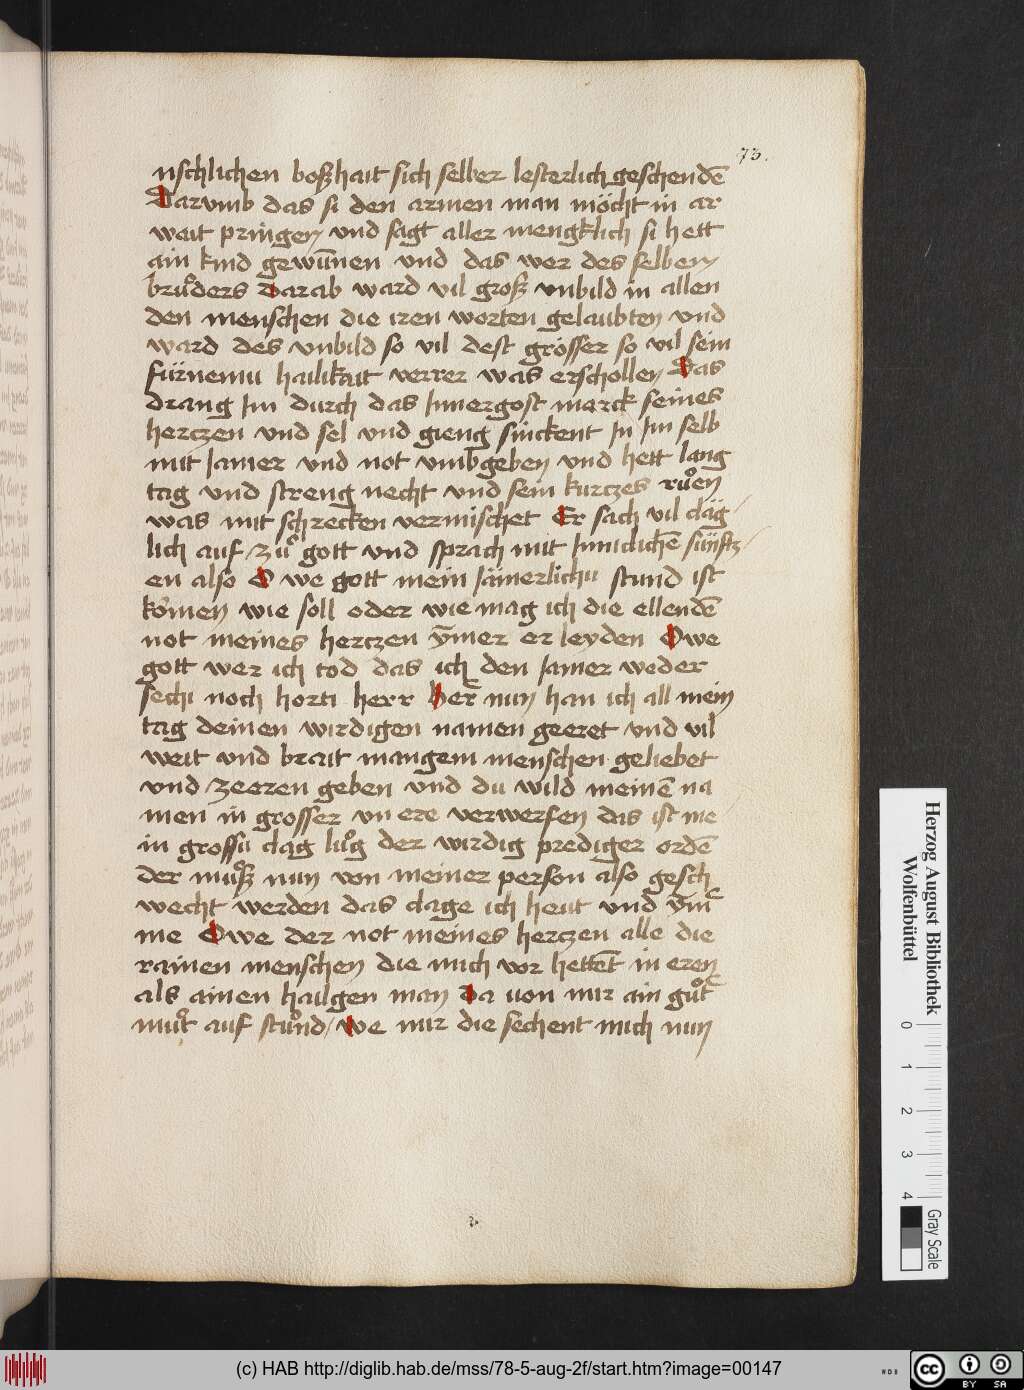 73.
nschlichen boßhait sich selber lesterlich geschendē
Darvmb das si den armen man möcht in ar
wait pringen vnd sagt aller mengklich si hett
ain kind gewūnen vnd das wer des selben
brůders Darab ward vil groß vnbild in allen
den menschen die iren worten gelaubten vnd
ward des vnbild so vil dest grösser so vil sein
fürnemu hailikait verrer was erschollen Das
drang Im durch das Innergost marck seines
herczen vnd sel vnd gieng sinckent In Im selb
mit Iamer vnd not vmbgeben vnd hett lang
tag vnd streng necht vnd sein kurczes růen
was mit schrecken vermischet Er sach vil cläg/
lich auf / zů gott vnd sprach mit Inniclichē süfftz/
en also O we gott mein Iämerlichu stund ist
komen wie soll oder wie mag ich die ellendē
not meines herczen ȳmer er leyden Owe
gott wer ich tod das ich den Iamer weder
sechi noch horti herr her nun han ich all mein
tag deinen wirdigen namen geeret vnd vil
weit vnd brait mangem menschen geliebet
vnd zeeren geben vnd du wild meinē na
men in grosser vn ere verwerfen das ist me
in grossu clag lůg der wirdig prediger ordē
der můß nun von meiner person also gesch
wecht werden das clage ich heut vnd ȳm
me Owe der not meines herczen alle die
rainen menschen die mich vor hettēt in eren
als ainen hailgen man Da von mir ain gůt
můt auf stůnd / we mir die sechent mich nun
Herzog August Bibliothek
Wolfenbüttel
0 1 2 3 4
Gray Scale
(c) HAB http://diglib.hab.de/mss/78-5-aug-2f/start.htm?image=00147
WDB
cc BY SA